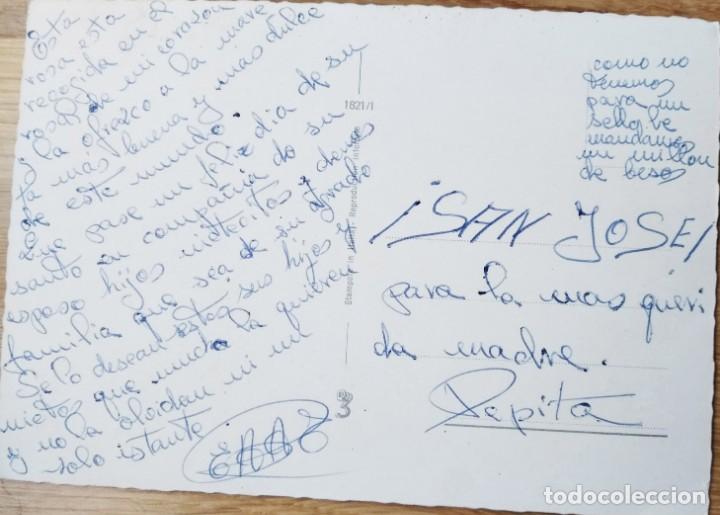 Esta
rosa esta
recogida en el
rosal de mi corazon
y la ofrezco a la mare
ta mas buena y mas dulce
de este mundo.
Que pase un feliz dia de su
santo en compañia de su
esposo hijos nietecitos y demas
familia que sea de su agrado
Se lo desean estos sus hijos y
nietos que mucho la quieren
y no la olvidan ni un
solo istante
1821/1
Stampato in Italy Reproduction interdite
3
como no
tenemos
para un
sello le
mandamos
un millon
de besos
¡SAN JOSE!
para la mas queri
da madre.
Pepita
todocoleccion
todocoleccion.net